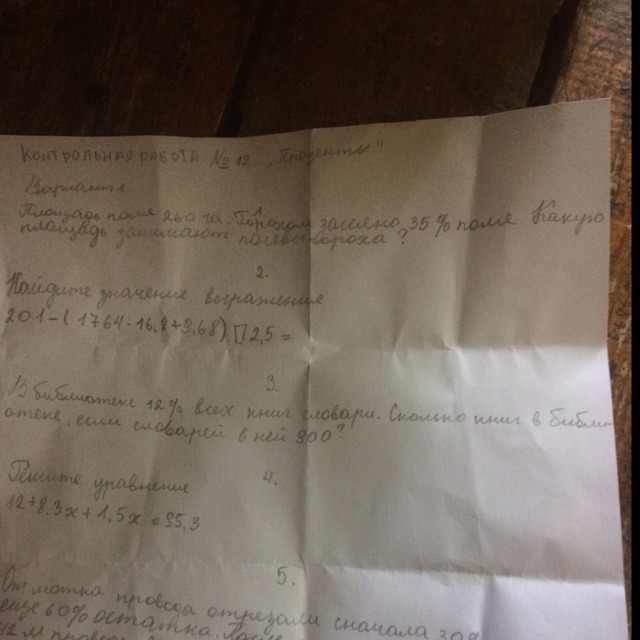 КОНТРОЛЬНАЯ РАБОТА № 12 „Проценты"
Вариант 1
Площадь поля 260 га. Горохом засеяно 35% поля. Какую
площадь занимают посевы гороха?
2.
Найдите значение выражения
201-(176,4:16,8+9,68)∏2,5=
3.
В библиотеке 12% всех книг словари. Сколько книг в библи
отеке, если словарей в ней 900?
4.
Решите уравнение
12+8,3x+1,5x=95,3
5.
От мотка провода отрезали сначала 30%
еще 60% остатка. После
м